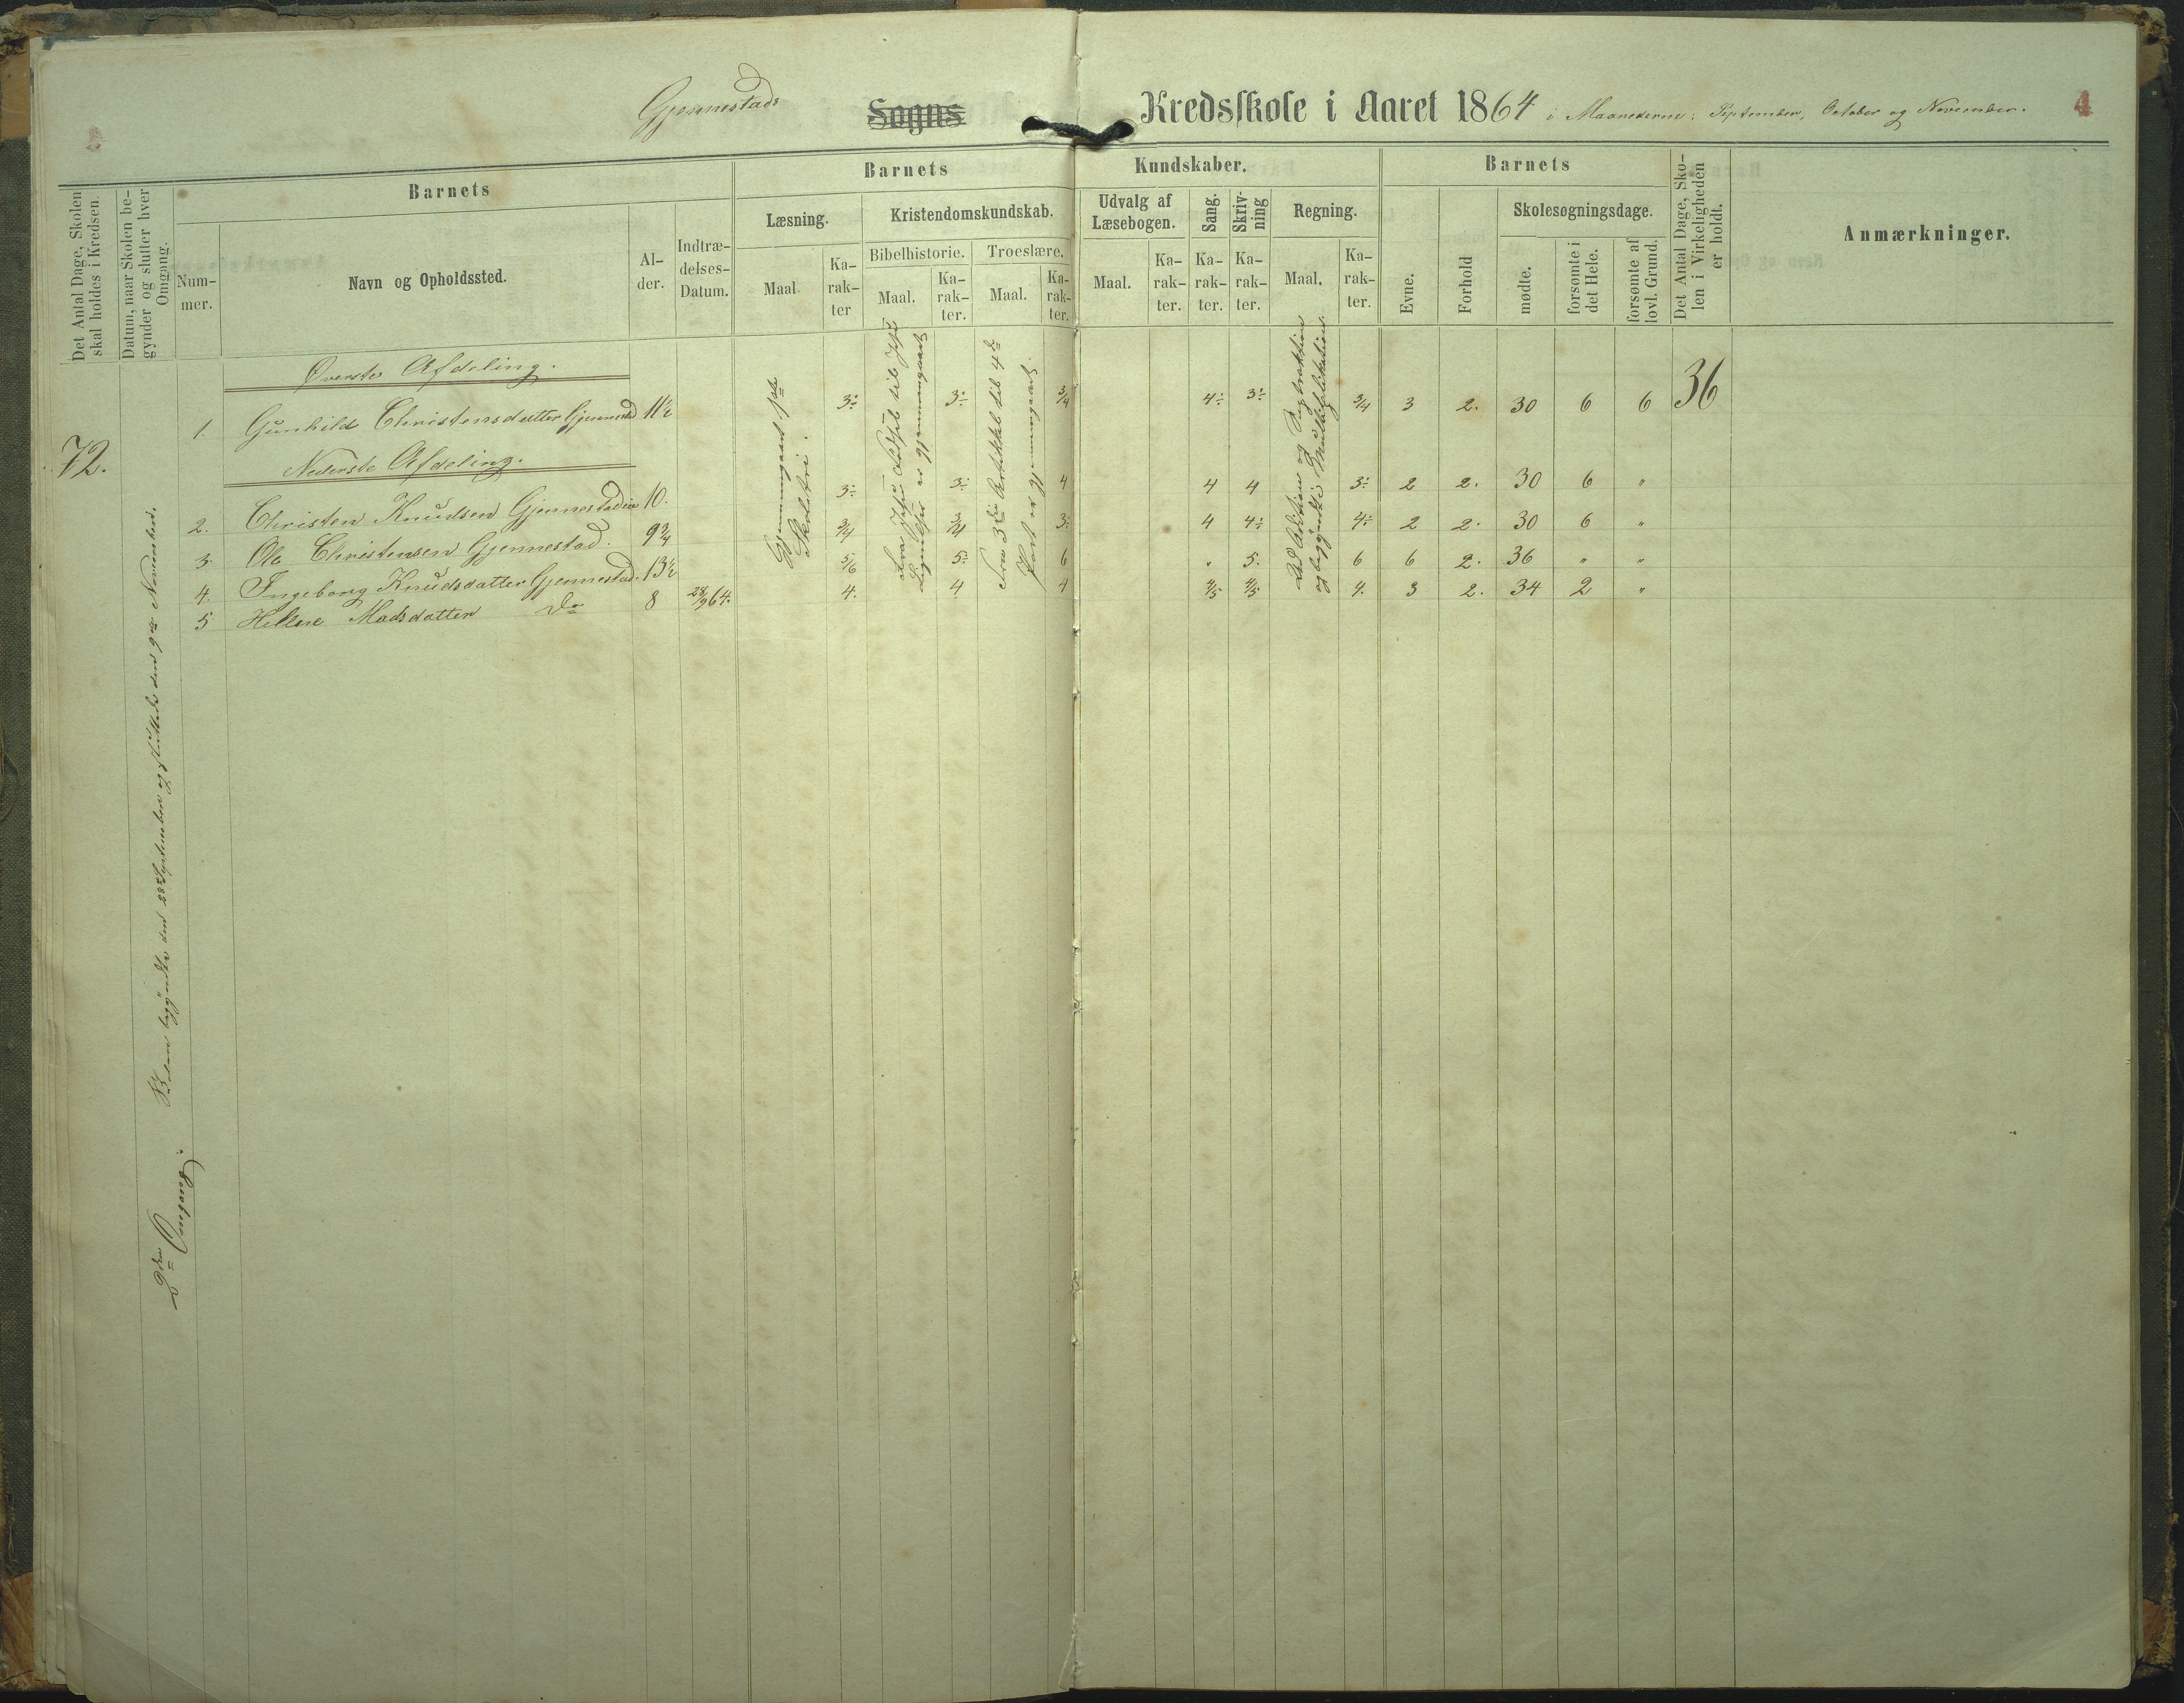 Gjennestads Sogns Kredsskole i Aaret 1864 i Maanederne: September, October og November. 4
Det Antal Dage, Skolen skal holdes i Kredsen.
Datum, naar Skolen begynder og slutter hver Omgang.
Barnets
Nummer.
Navn og Opholdssted.
Alder.
Indtrædelses-Datum.
Barnets Kundskaber.
Læsning.
Maal.
Karakter
Kristendomskundskab.
Bibelhistorie.
Maal.
Karakter.
Troeslære.
Maal.
Karakter.
Udvalg af Læsebogen.
Maal.
Karakter.
Sang.
Karakter.
Skrivning
Karakter.
Regning.
Maal,
Karakter.
Barnets
Evne.
Forhold
Skolesøgningsdage.
mødte.
forsømte i det Hele.
forsømte af lovl. Grund.
Det Antal Dage, Skolen i Virkeligheden er holdt.
Anmærkninger.
72.
2den Omgang.
Skolen begyndte den 28de September og sluttede den 9de November.
Øverste Afdeling.
1. Gunhild Christensdatter Gjennestad 11½ 3÷ 3÷ 3/4 4÷ 3÷ 3/4 3 2. 30 6 6 36
Nederste Afdeling.
2. Christen Knudsen Gjennestadeie 10. 3÷ 3÷ 4 4 4 3÷ 2 2. 30 6 "
3. Ole Christensen Gjennestad. 9¾ 3/4 3/4 3÷ 4 4÷ 4÷ 2 2. 30 6 "
4. Ingeborg Knudsdatter Gjennestad. 13½ 5/6 5÷ 6 " 5. 6 6 2. 36 " "
5 Hellene Madsdatter Do 8 28/9 64. 4. 4 4 4/5 4/5 4. 3 2. 34 2 "
Gjennemgaaet 1ste
Skoletri.
Fra Jesu Fødsel til Jesu
Lignelser er gjennemgaaet
Fra 3die Artikkel til 4de
Part er gjennemgaaet.
Lært Addition og Subtraktion
og begyndt i Multiplikation.